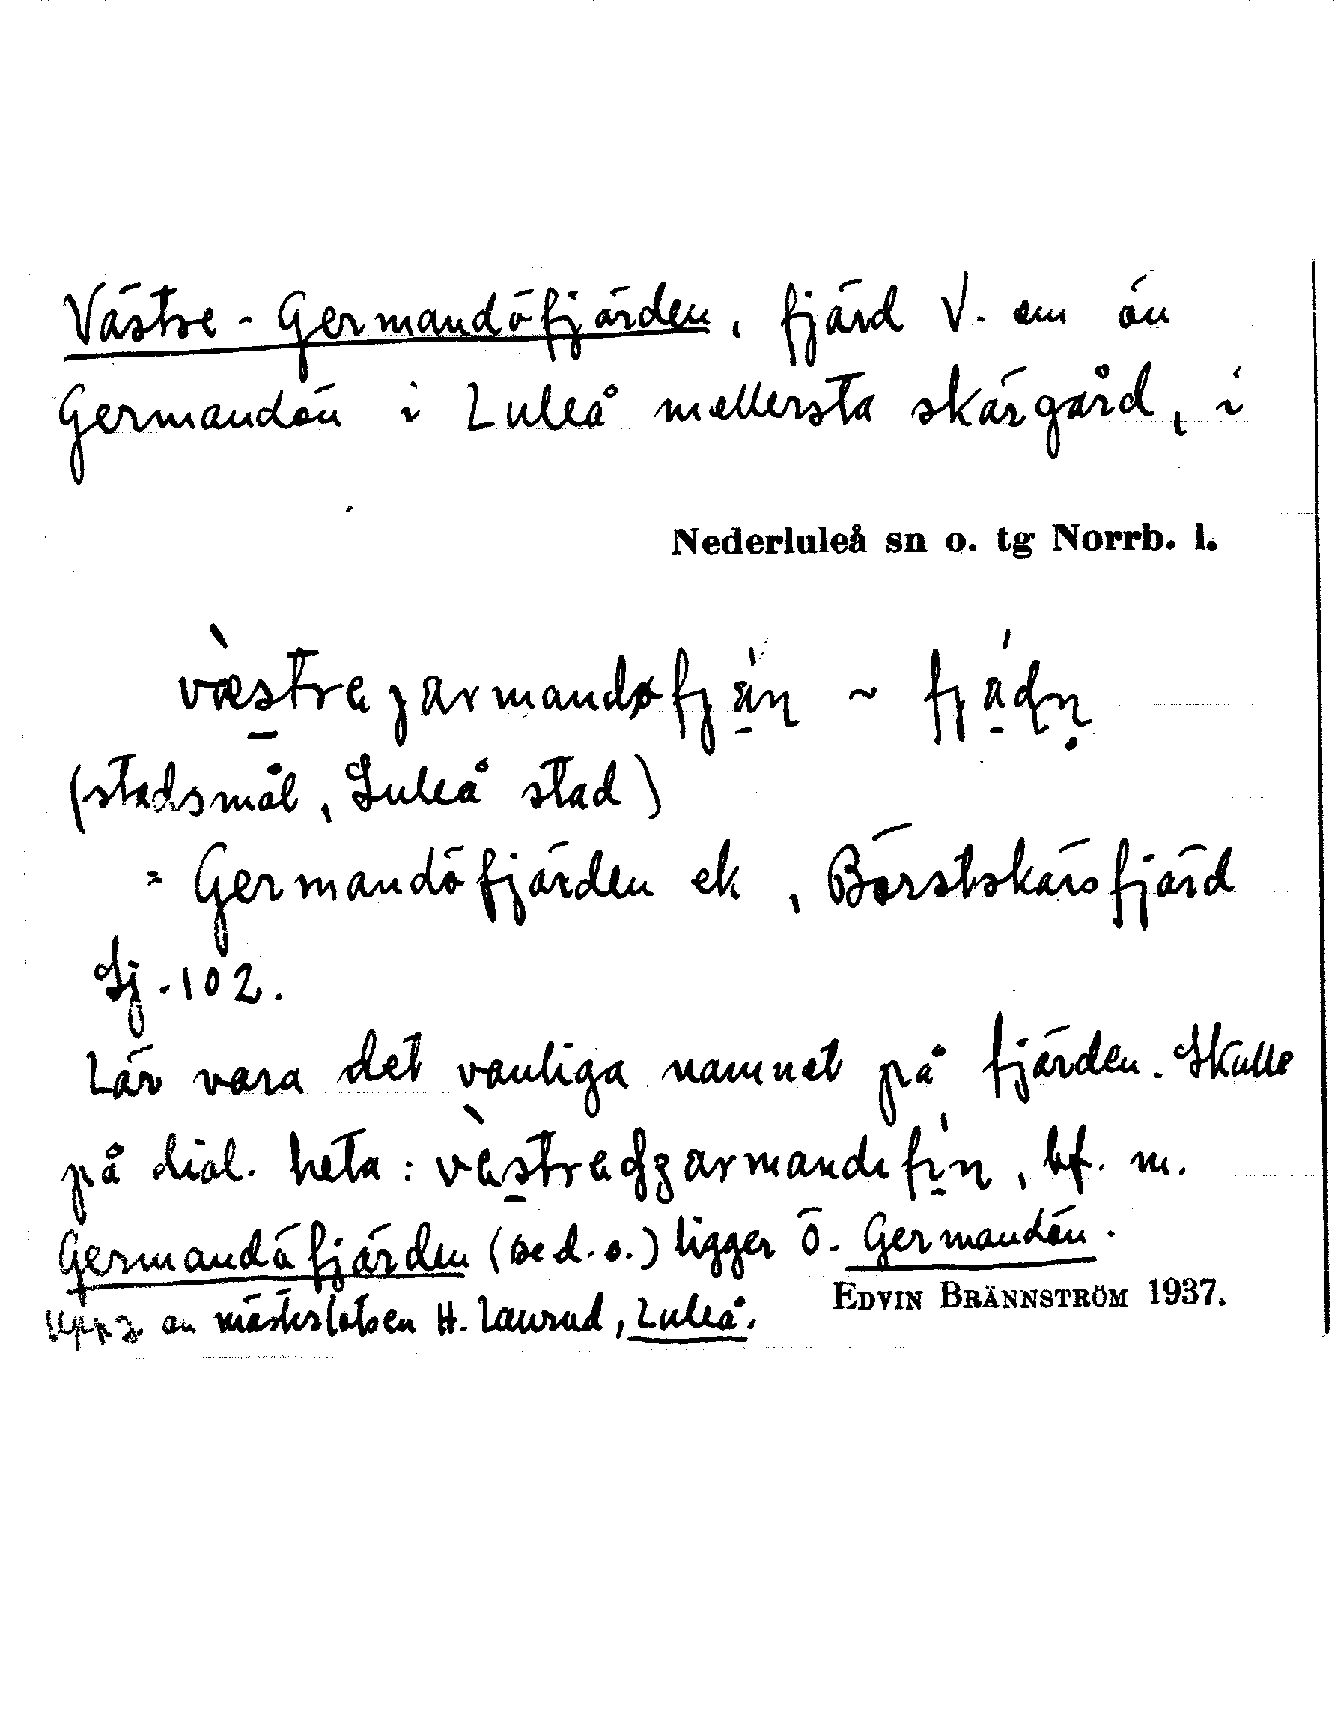 Västre-Germandöfjärden, fjärd V. om ön
Germandön i Luleå mellersta skärgård, i
Nederluleå sn o. tg Norrb. l.
(stadsmål, Luleå stad)
= Germandöfjärden ek, Börstskärsfjärd
Sj.102.
Lär vara det vanliga namnet på fjärden. Skulle
på dial. heta: bf. m.
Germandöfjärden (se d. o.) ligger Ö. Germandön.
Uppg av mästerlotsen H. Luleå.
EDVIN BRÄNNSTRÖM 1937.